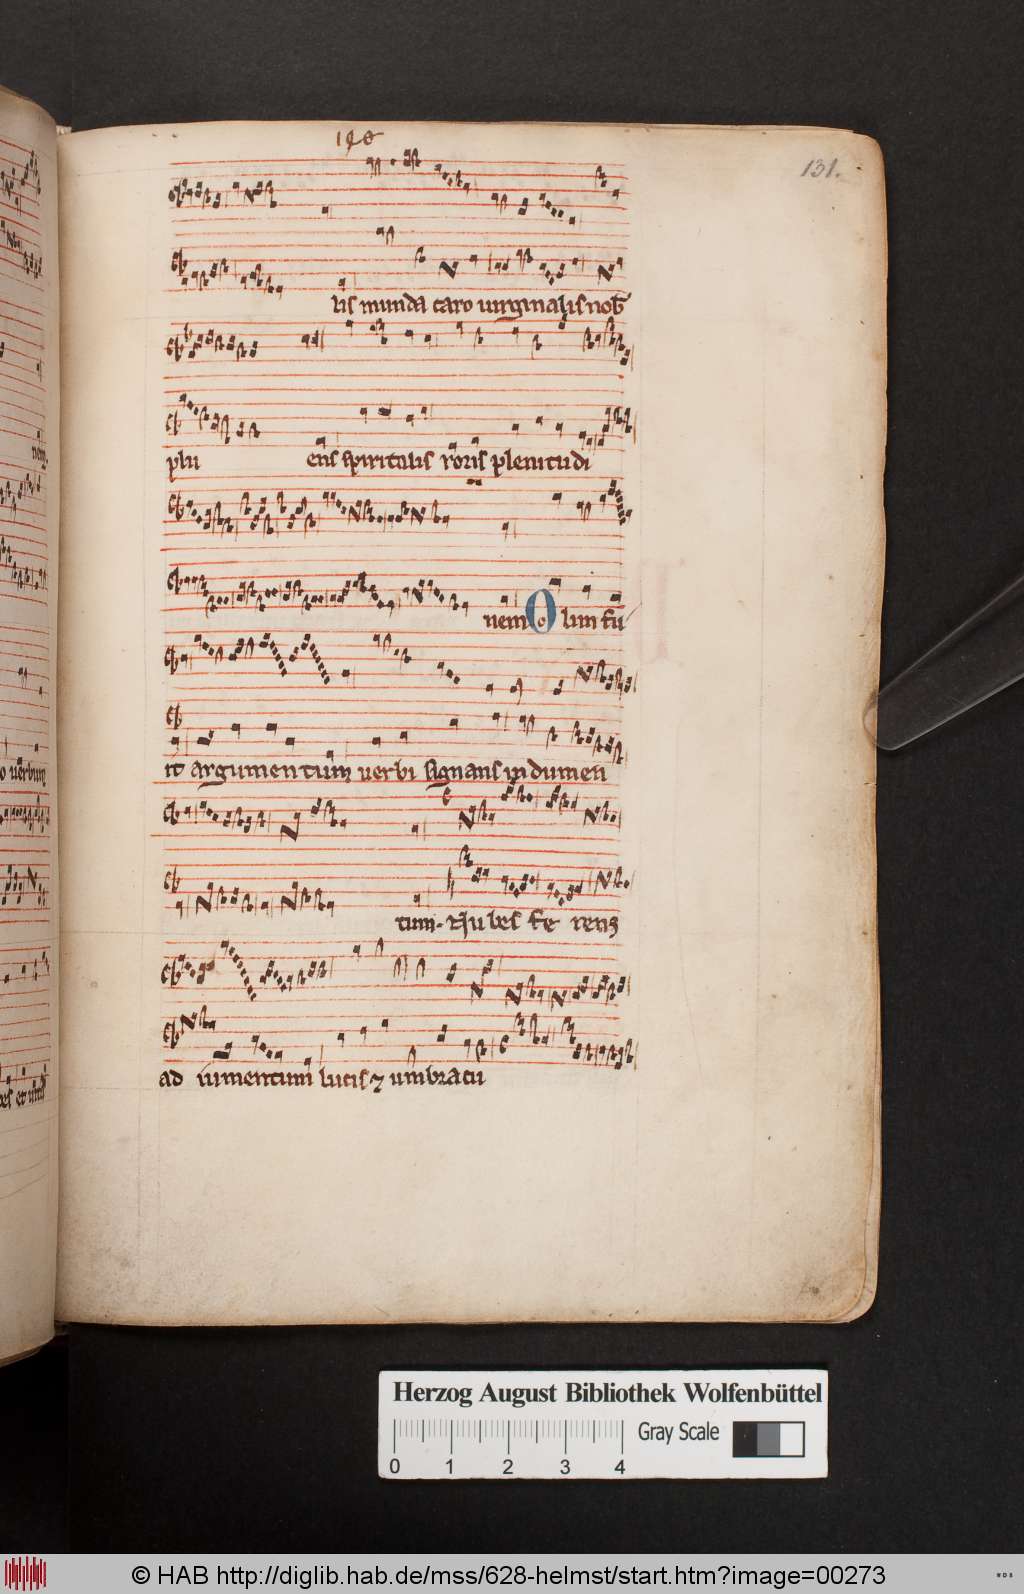 140
131.
lis munda caro uirginalis nob
plu ens spiritalis roris plenitudi
nem Olim fu
it argumentum uerbi signans indumen
tum. Nubes fe rens
ad iumentum lucis ⁊ umbracu
nem
o uerbum
Herzog August Bibliothek Wolfenbüttel
Gray Scale
0 1 2 3 4
© HAB http://diglib.hab.de/mss/628-helmst/start.htm?image=00273